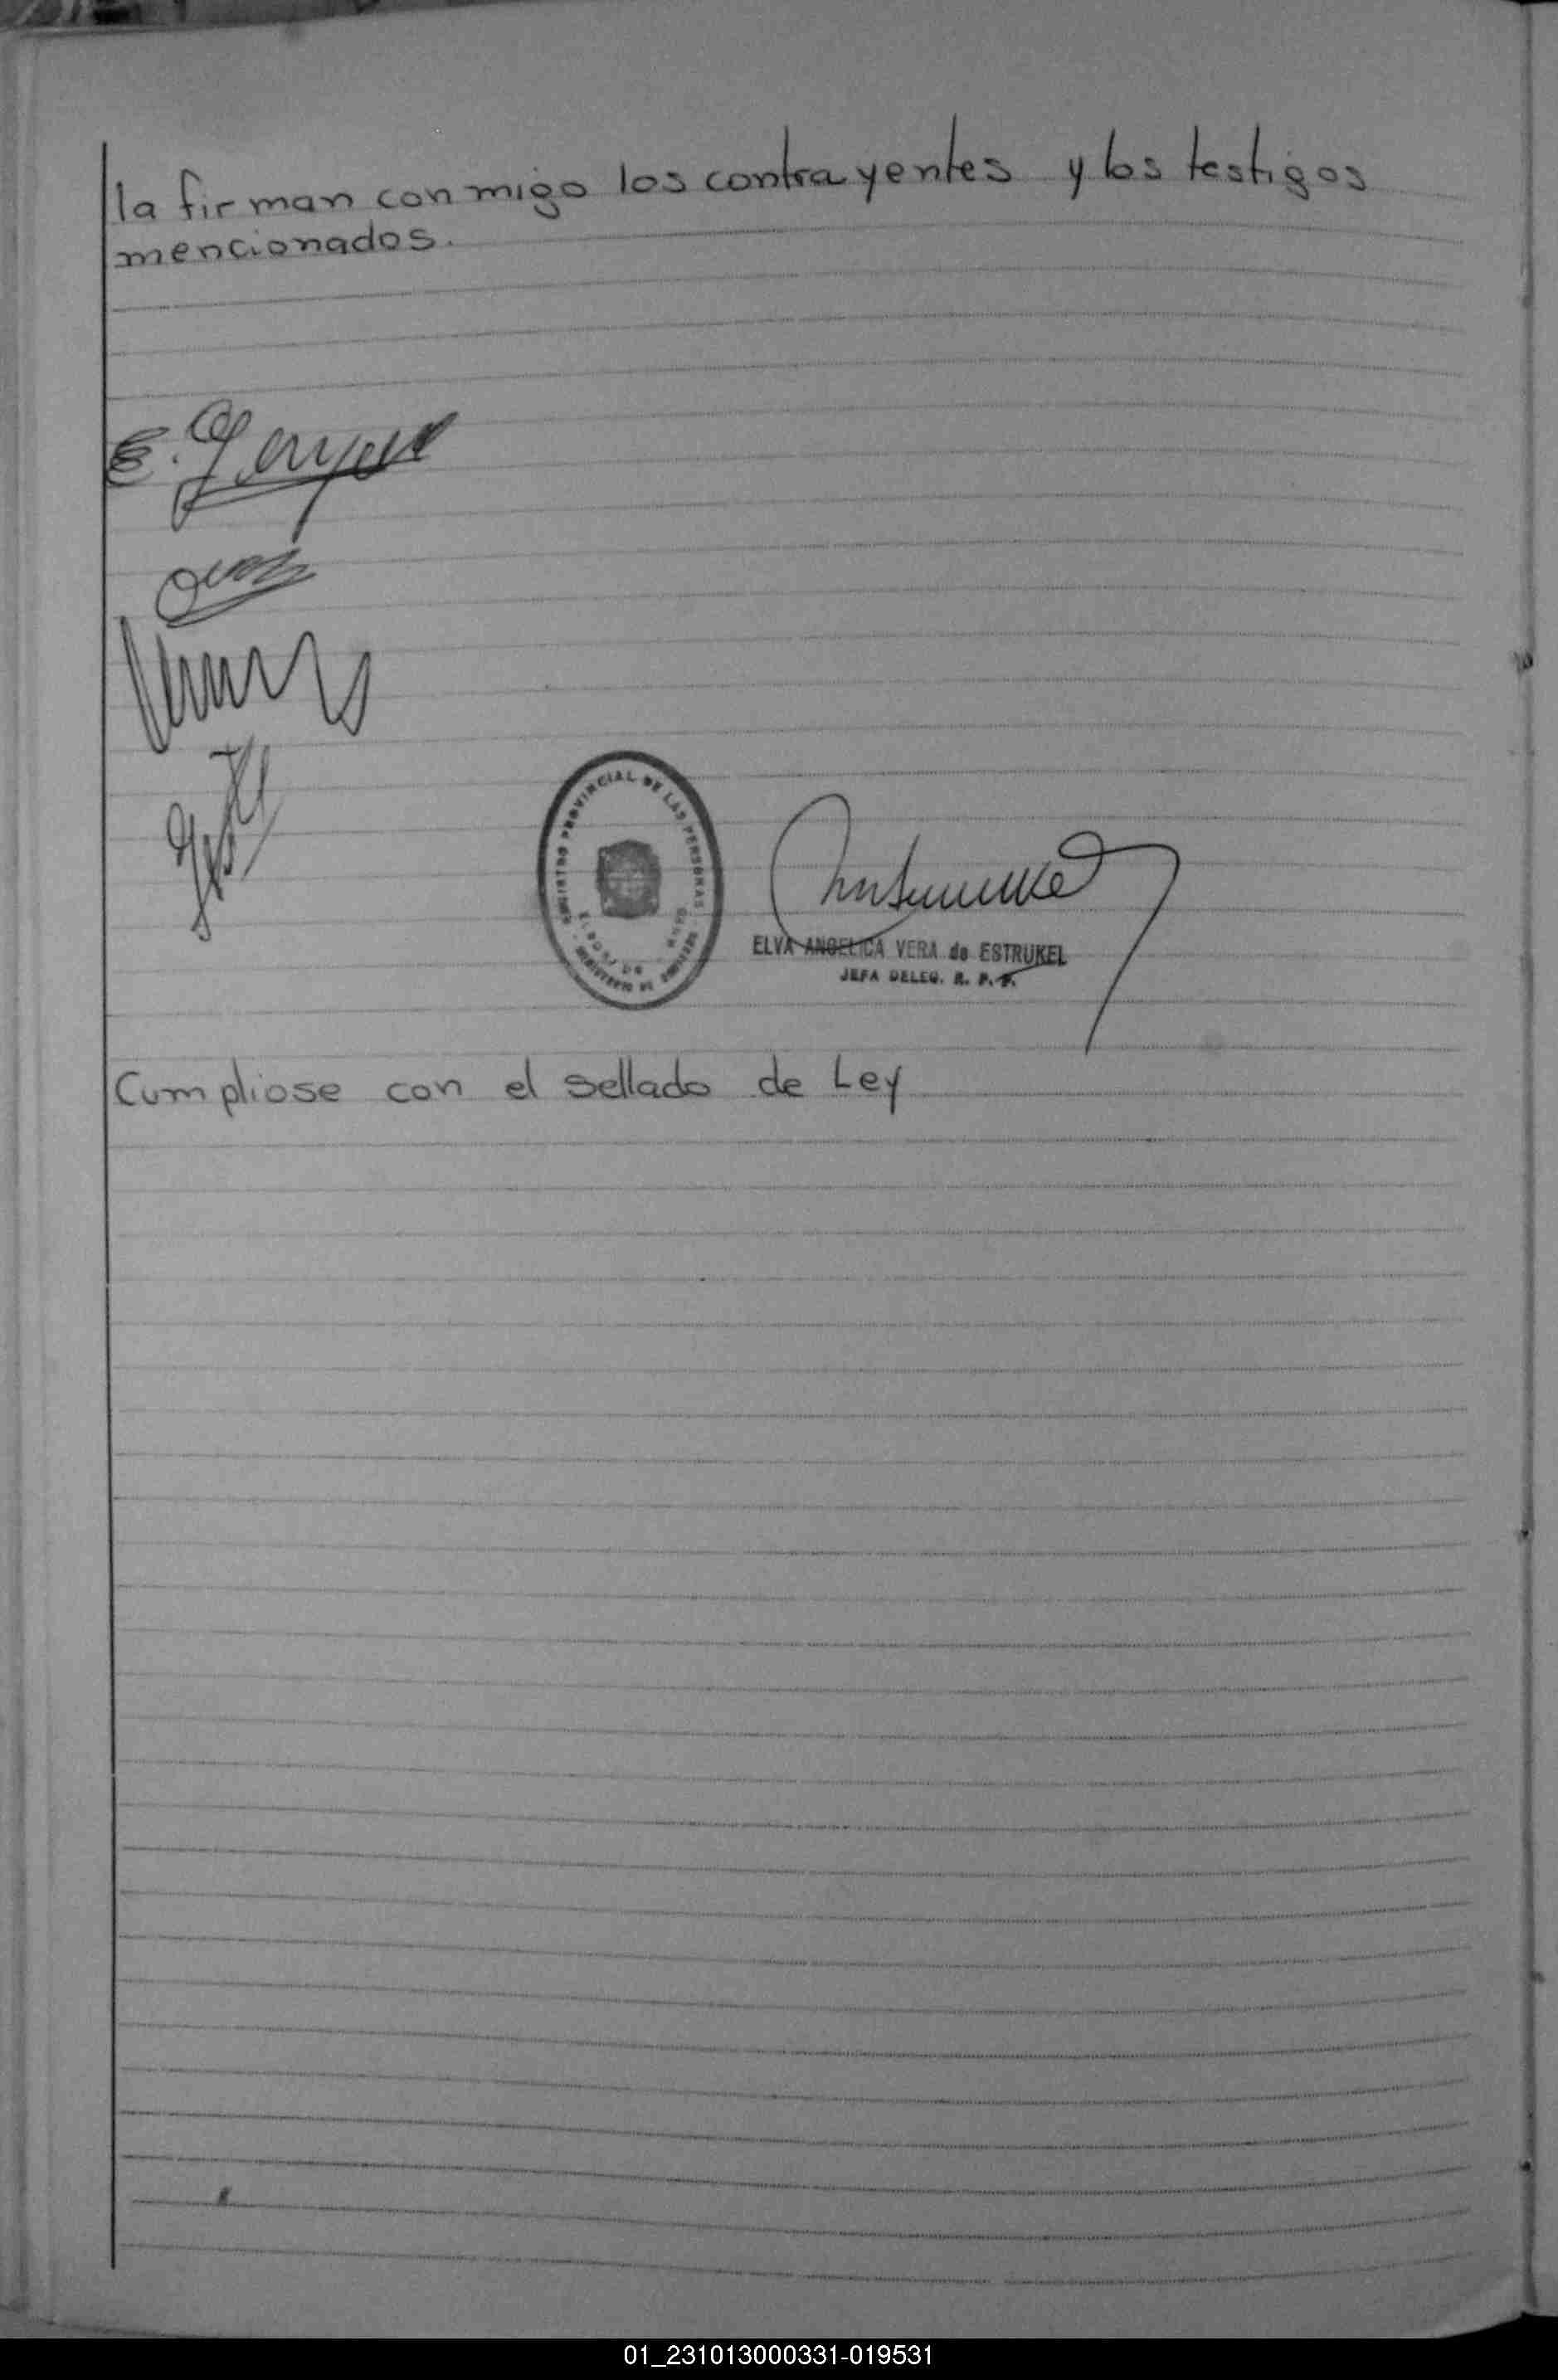 la firman conmigo los contrayentes y los testigos
mencionados.
REGISTRO PROVINCIAL DE LAS PERSONAS
ELVA ANGELICA VERA de ESTRUKEL
JEFA DELEG. R. P. P.
Cumpliose con el sellado de Ley
01_231013000331-019531